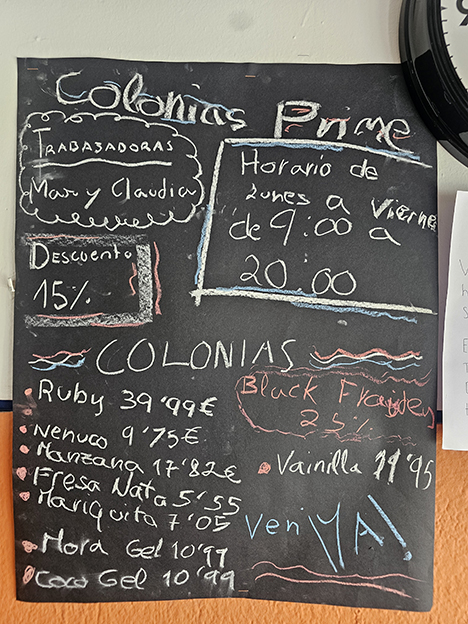 Colonias Prime
TRABAJADORAS
Mar y Claudia
Horario de
Lunes a Vierne
de 9:00 a
20:00
Descuento
15%
COLONIAS
Ruby 39'99€
Nenuco 9'75€
Manzana 17'82€
Fresa Nata 5'55
Mariquita 7'05
Mora Gel 10'99
Coco Gel 10'99
Black Frayday
25%
Vainilla 11'95
Ven ¡YA!